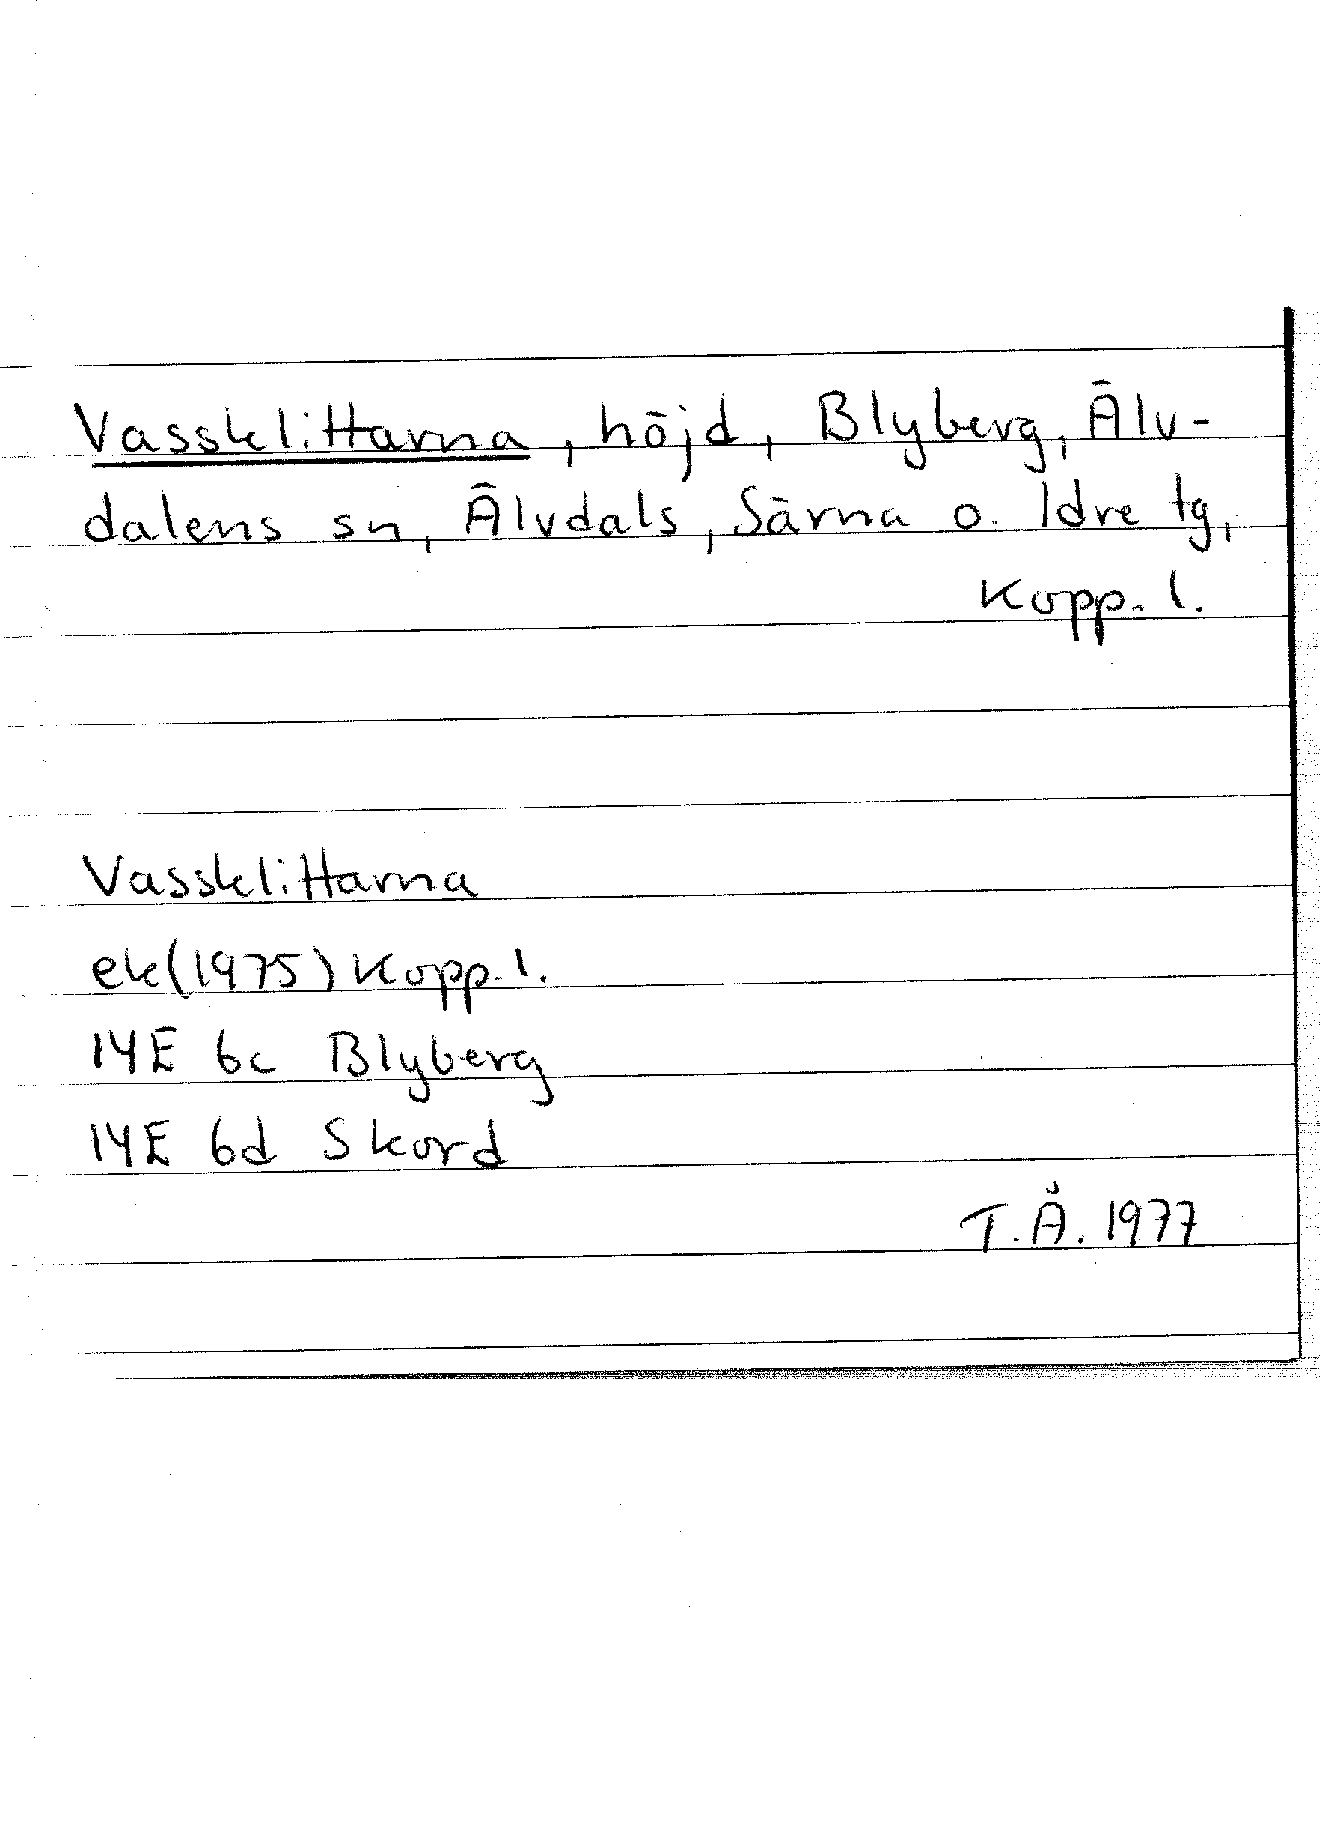 Vassklittarna, höjd, Blyberg, Älv-
dalens sn, Älvdals, Särna o. Idre tg,
Kopp. l.
Vassklittarna
ek(1975) Kopp. l.
14E 6c Blyberg
14E 6d Skord
T.Å. 1977